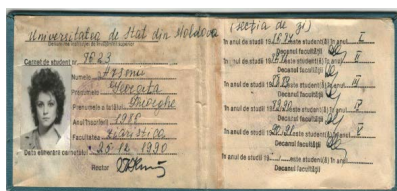 Universitatea de Stat din Moldova
Denumirea instituţiei de învăţămînt superior
Carnet de student nr. 7823
Numele Arsenii
Prenumele
Prenumele a tatălui Gheorghe
Anul înscrierii 1986
Facultatea Ziaristica
Data eliberării carnetului 25.12.1990
Rector
(secţia de zi)
În anul de studii 19 este student(ă) în anul I
Decanul facultăţii
În anul de studii 19 este student(ă) în anul II
Decanul facultăţii
În anul de studii 19 este student(ă) în anul III
Decanul facultăţii
În anul de studii 19 este student(ă) în anul IV
Decanul facultăţii
În anul de studii 19 este student(ă) în anul V
Decanul facultăţii
În anul de studii 19 este student(ă) în anul
Decanul facultăţii